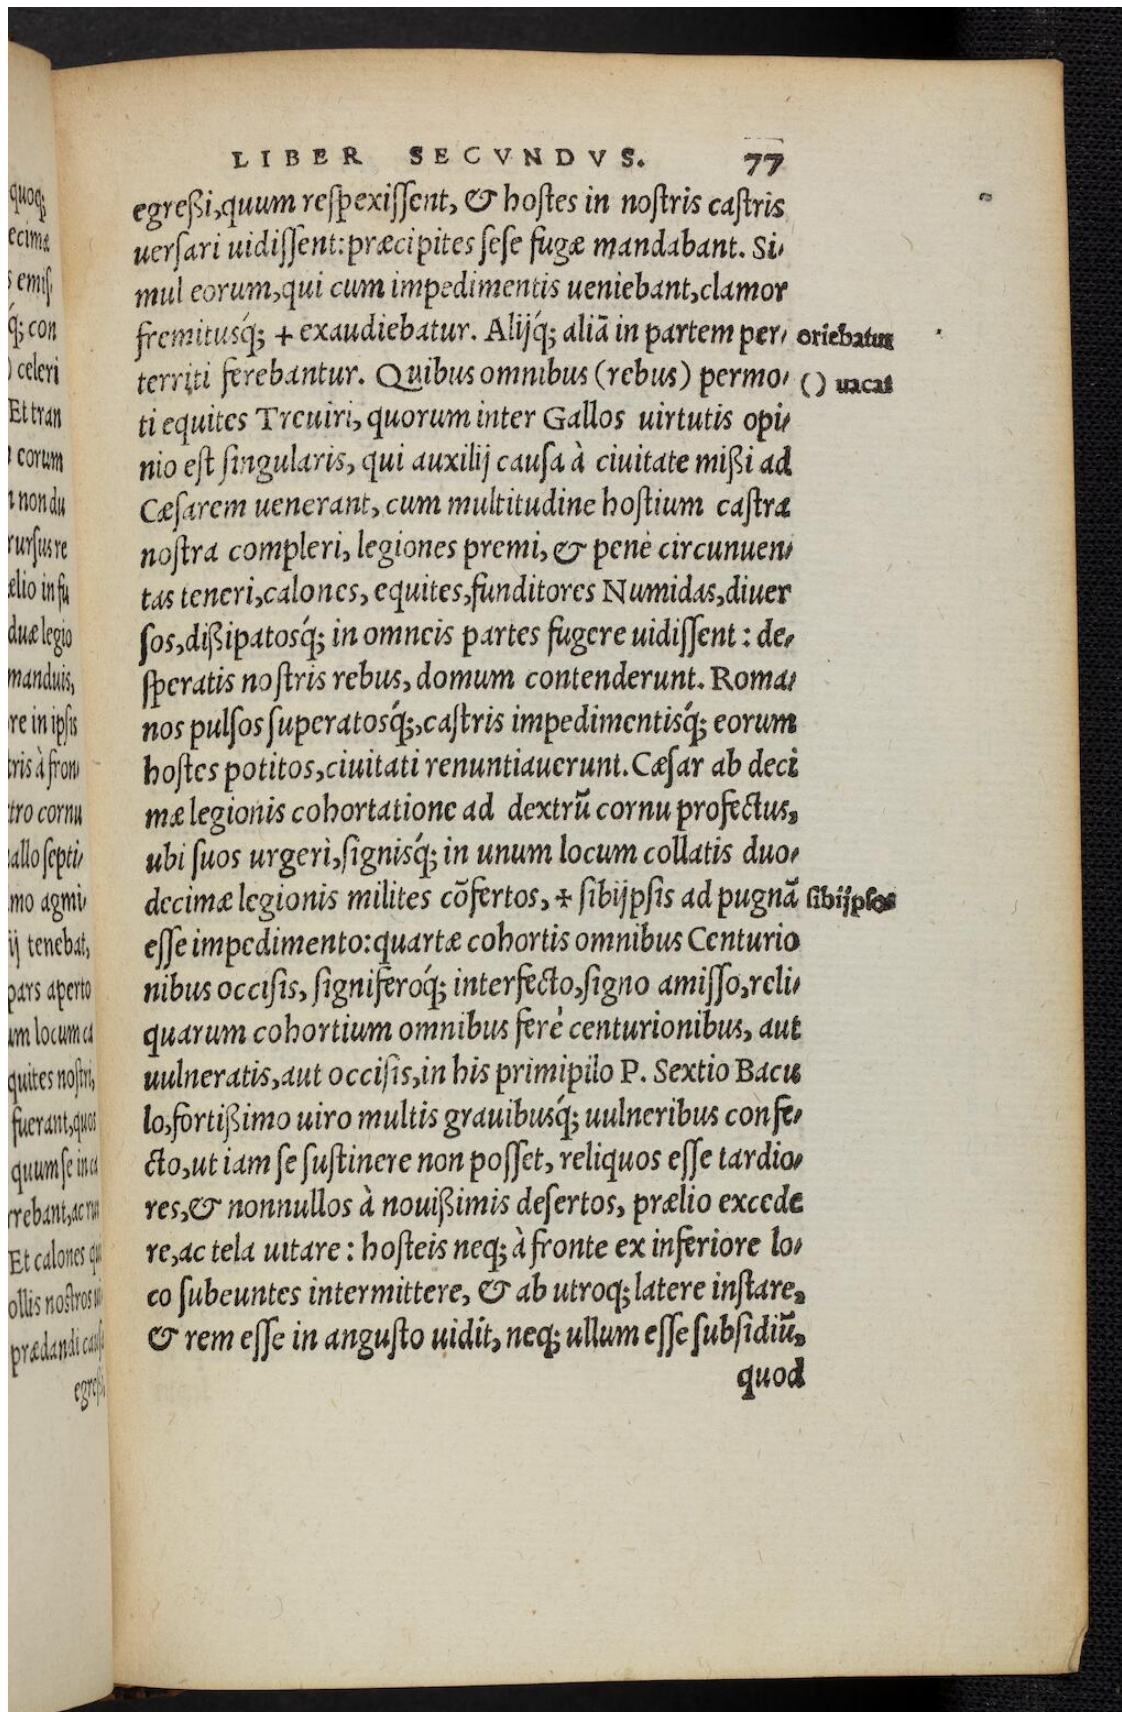 LIBER SECVNDVS. 77
egreßi,quum reſpexiſſent, & hoſtes in noſtris caſtris
uerſari uidiſſent:præcipites ſeſe fugæ mandabant. Si-
mul eorum,qui cum impedimentis ueniebant,clamor
fremitusq́; + exaudiebatur. Alijq́; aliā in partem per- oriebatur
territi ferebantur. Quibus omnibus (rebus) permo- () uacat
ti equites Treuiri, quorum inter Gallos uirtutis opi-
nio eſt ſingularis, qui auxilij cauſa à ciuitate mißi ad
Cæſarem uenerant, cum multitudine hoſtium caſtra
noſtra compleri, legiones premi, & penè circunuen-
tas teneri,calones, equites,funditores Numidas,diuer
ſos,dißipatosq́; in omneis partes fugere uidiſſent : de-
ſperatis noſtris rebus, domum contenderunt. Roma-
nos pulſos ſuperatosq́;,caſtris impedimentisq́; eorum
hoſtes potitos,ciuitati renuntiauerunt. Cæſar ab deci
mæ legionis cohortatione ad dextrū cornu profectus,
ubi ſuos urgeri,ſignisq́; in unum locum collatis duo-
decimæ legionis milites cōfertos, + ſibijpſis ad pugnā ſibijpſos
eſſe impedimento:quartæ cohortis omnibus Centurio
nibus occiſis, ſigniferoq́; interfecto,ſigno amiſſo,reli-
quarum cohortium omnibus ferè centurionibus, aut
uulneratis,aut occiſis,in his primipilo P. Sextio Bacu
lo,fortißimo uiro multis grauibusq́; uulneribus confe-
cto,ut iam ſe ſuſtinere non poſſet, reliquos eſſe tardio-
res,& nonnullos à nouißimis deſertos, prælio excede
re,ac tela uitare : hoſteis neq; à fronte ex inferiore lo-
co ſubeuntes intermittere, & ab utroq; latere inſtare,
& rem eſſe in anguſto uidit, neq; ullum eſſe ſubſidiū,
quod
quoq;
ecimæ
emiſ
q́; con
celeri
Et tran
eorum
non du
rurſus re
elio in fu
duæ legio
manduis,
re in ipſis
tris à fron-
tro cornu
allo ſepti-
mo agmi-
ij tenebat,
pars aperto
um locum ca
quites noſtri,
fuerant,quos
quum ſe in ca
rrebant,ac rur
Et calones qui
ollis noſtros ui
prædandi cauſa
egreßi,